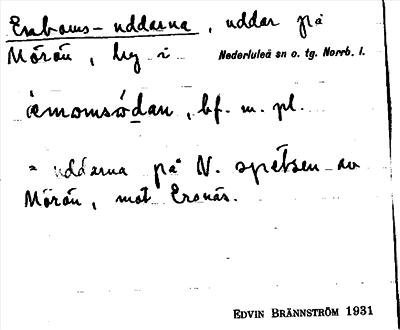 Emboms-uddarna, uddar på
Mörön, hg i Nederluleå sn o. tg. Norrb. l.
æmomsódan, bf. m. pl.
= uddarna på N. spetsen av
Mörön, mot Ersnäs.
EDVIN BRÄNNSTRÖM 1931